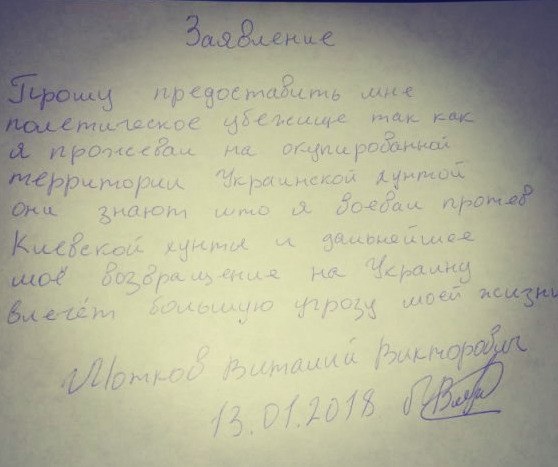 Заявление
Прошу предоставить мне
полетическое убежище так как
я прожевал на окупированной
территории Украинской хунтой
они знают што я воевал протев
Киевской хунти и дальнейшее
моё возвращение на Украину
влечёт большую угрозу моей жизни
Мотков Виталий Викторович
13.01.2018